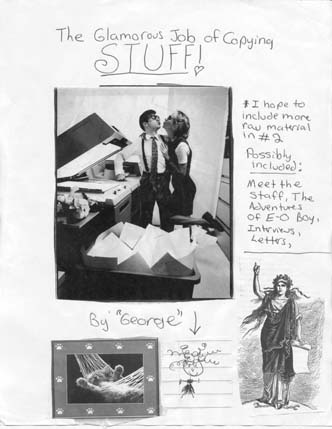 The Glamorous Job of Copying
STUFF!
* I hope to
include more
raw material
in #2
Possibly
included:
Meet the
Staff, The
Adventures
of E-O Boy,
Interviews,
Letters,
By "George"